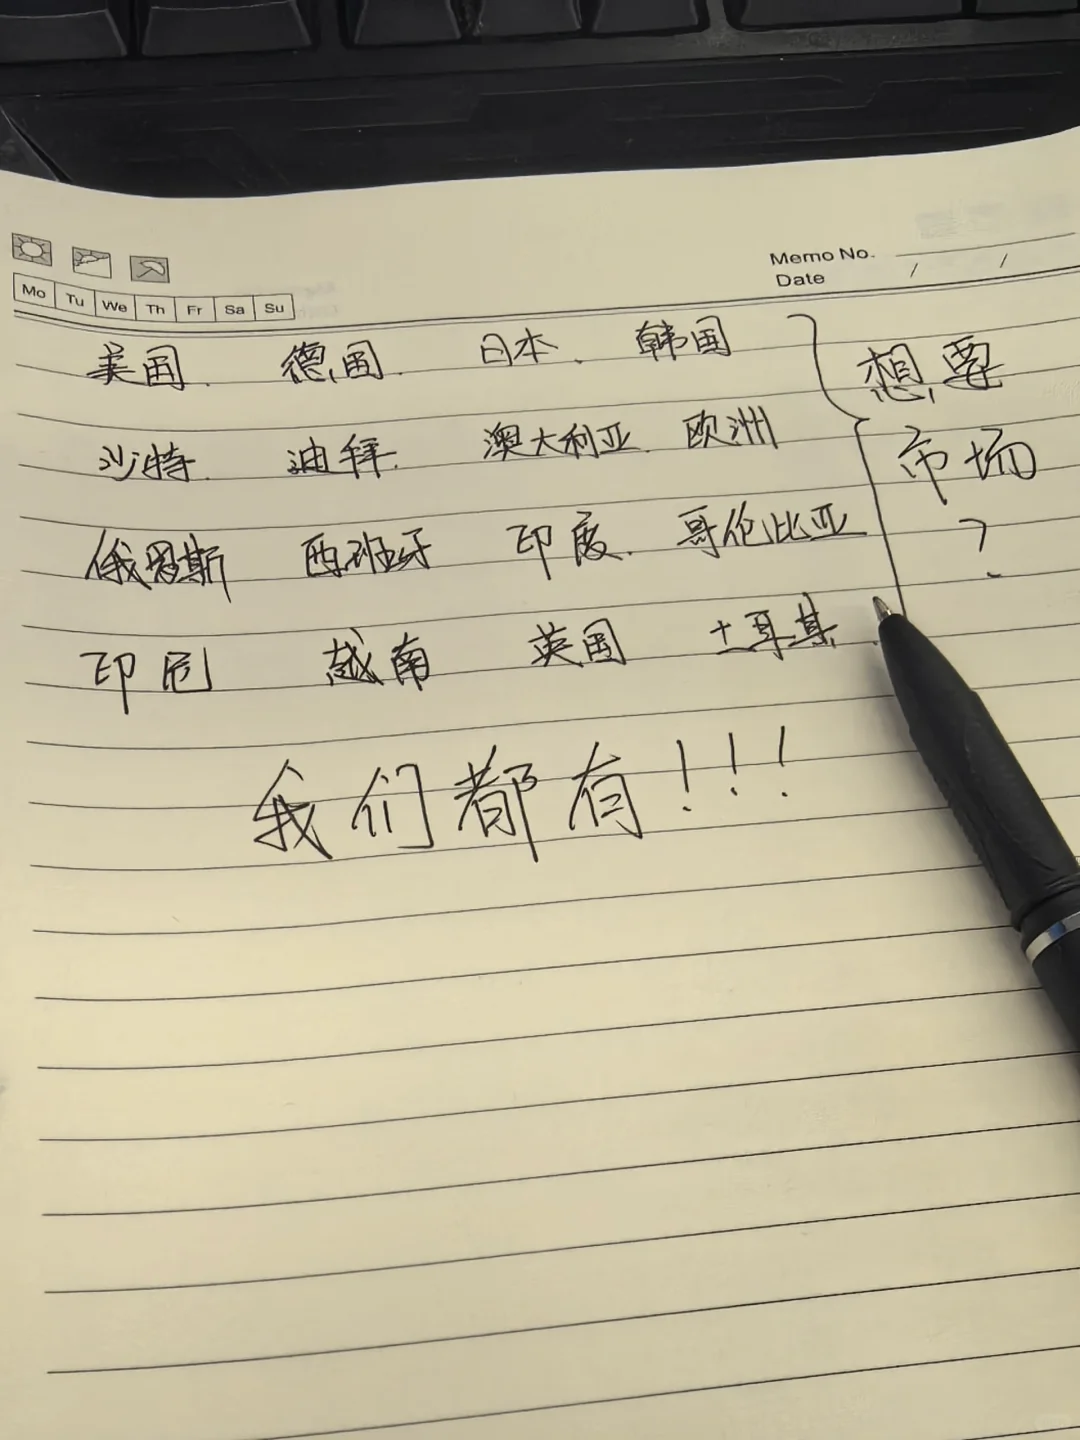 Memo No.
Date / /
Mo Tu We Th Fr Sa Su
美国. 德国. 日本. 韩国
沙特. 迪拜. 澳大利亚. 欧洲
俄罗斯 西班牙 印度. 哥伦比亚
印尼 越南 英国 土耳其
想要
市场
?
我们都有!!!